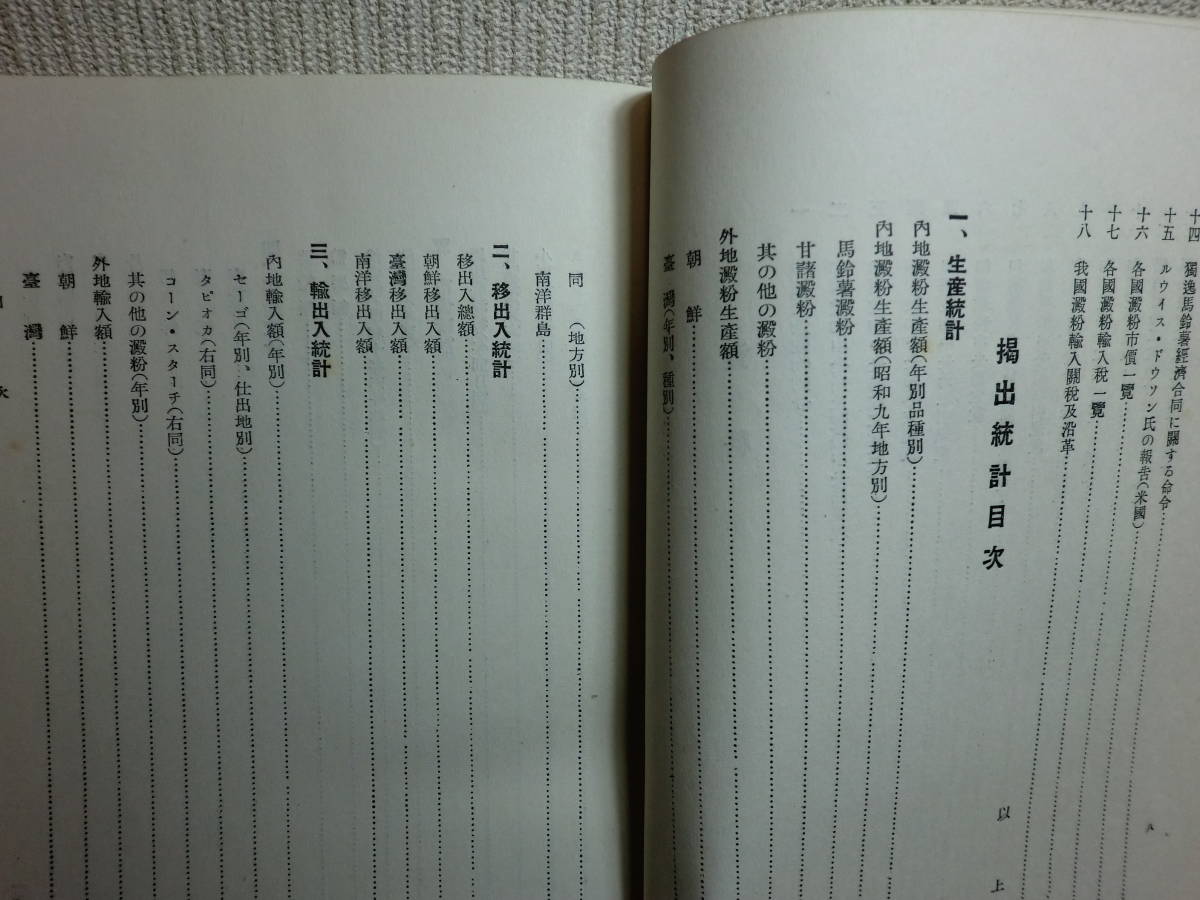 十四 獨逸馬鈴薯經濟合同に關する命令
十五 ルウイス・ドウソン氏の報吿(米國)
十六 各國澱粉市價一覽
十七 各國澱粉輸入稅一覽
十八 我國澱粉輸入關稅及沿革
以上
揭出統計目次
一、生産統計
內地澱粉生產額(年別品種別)
內地澱粉生產額(昭和九年地方別)
馬鈴薯澱粉
甘藷澱粉
其の他の澱粉
外地澱粉生產額
朝鮮
臺灣(年別、種別)
同 (地方別)
南洋群島
二、移出入統計
移出入總額
朝鮮移出入額
臺灣移出入額
南洋移出入額
三、輸出入統計
內地輸入額(年別)
セーゴ(年別、仕出地別)
タピオカ(右同)
コーン・スターチ(右同)
其の他の澱粉(年別)
外地輸入額
朝鮮
臺灣
次